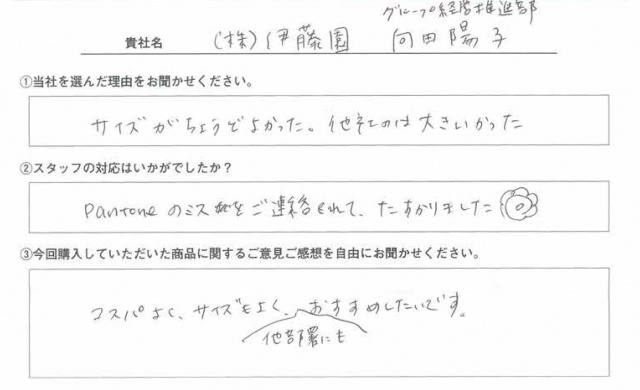 グループ経営推進部
貴社名 (株)伊藤園 向田陽子
①当社を選んだ理由をお聞かせください。
サイズがちょうどよかった。他社のは大きいかった
②スタッフの対応はいかがでしたか？
Pantoneのミスをご連絡くれて、たすかりました
③今回購入していただいた商品に関するご意見ご感想を自由にお聞かせください。
コスパよく、サイズもよく、おすすめしたいです。
他部署にも